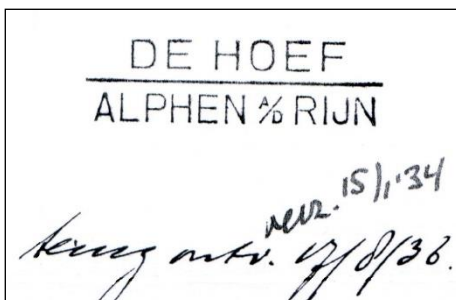 DE HOEF
ALPHEN A/D RIJN
verz. 15/1'34
terug ontv. 17/8/36.